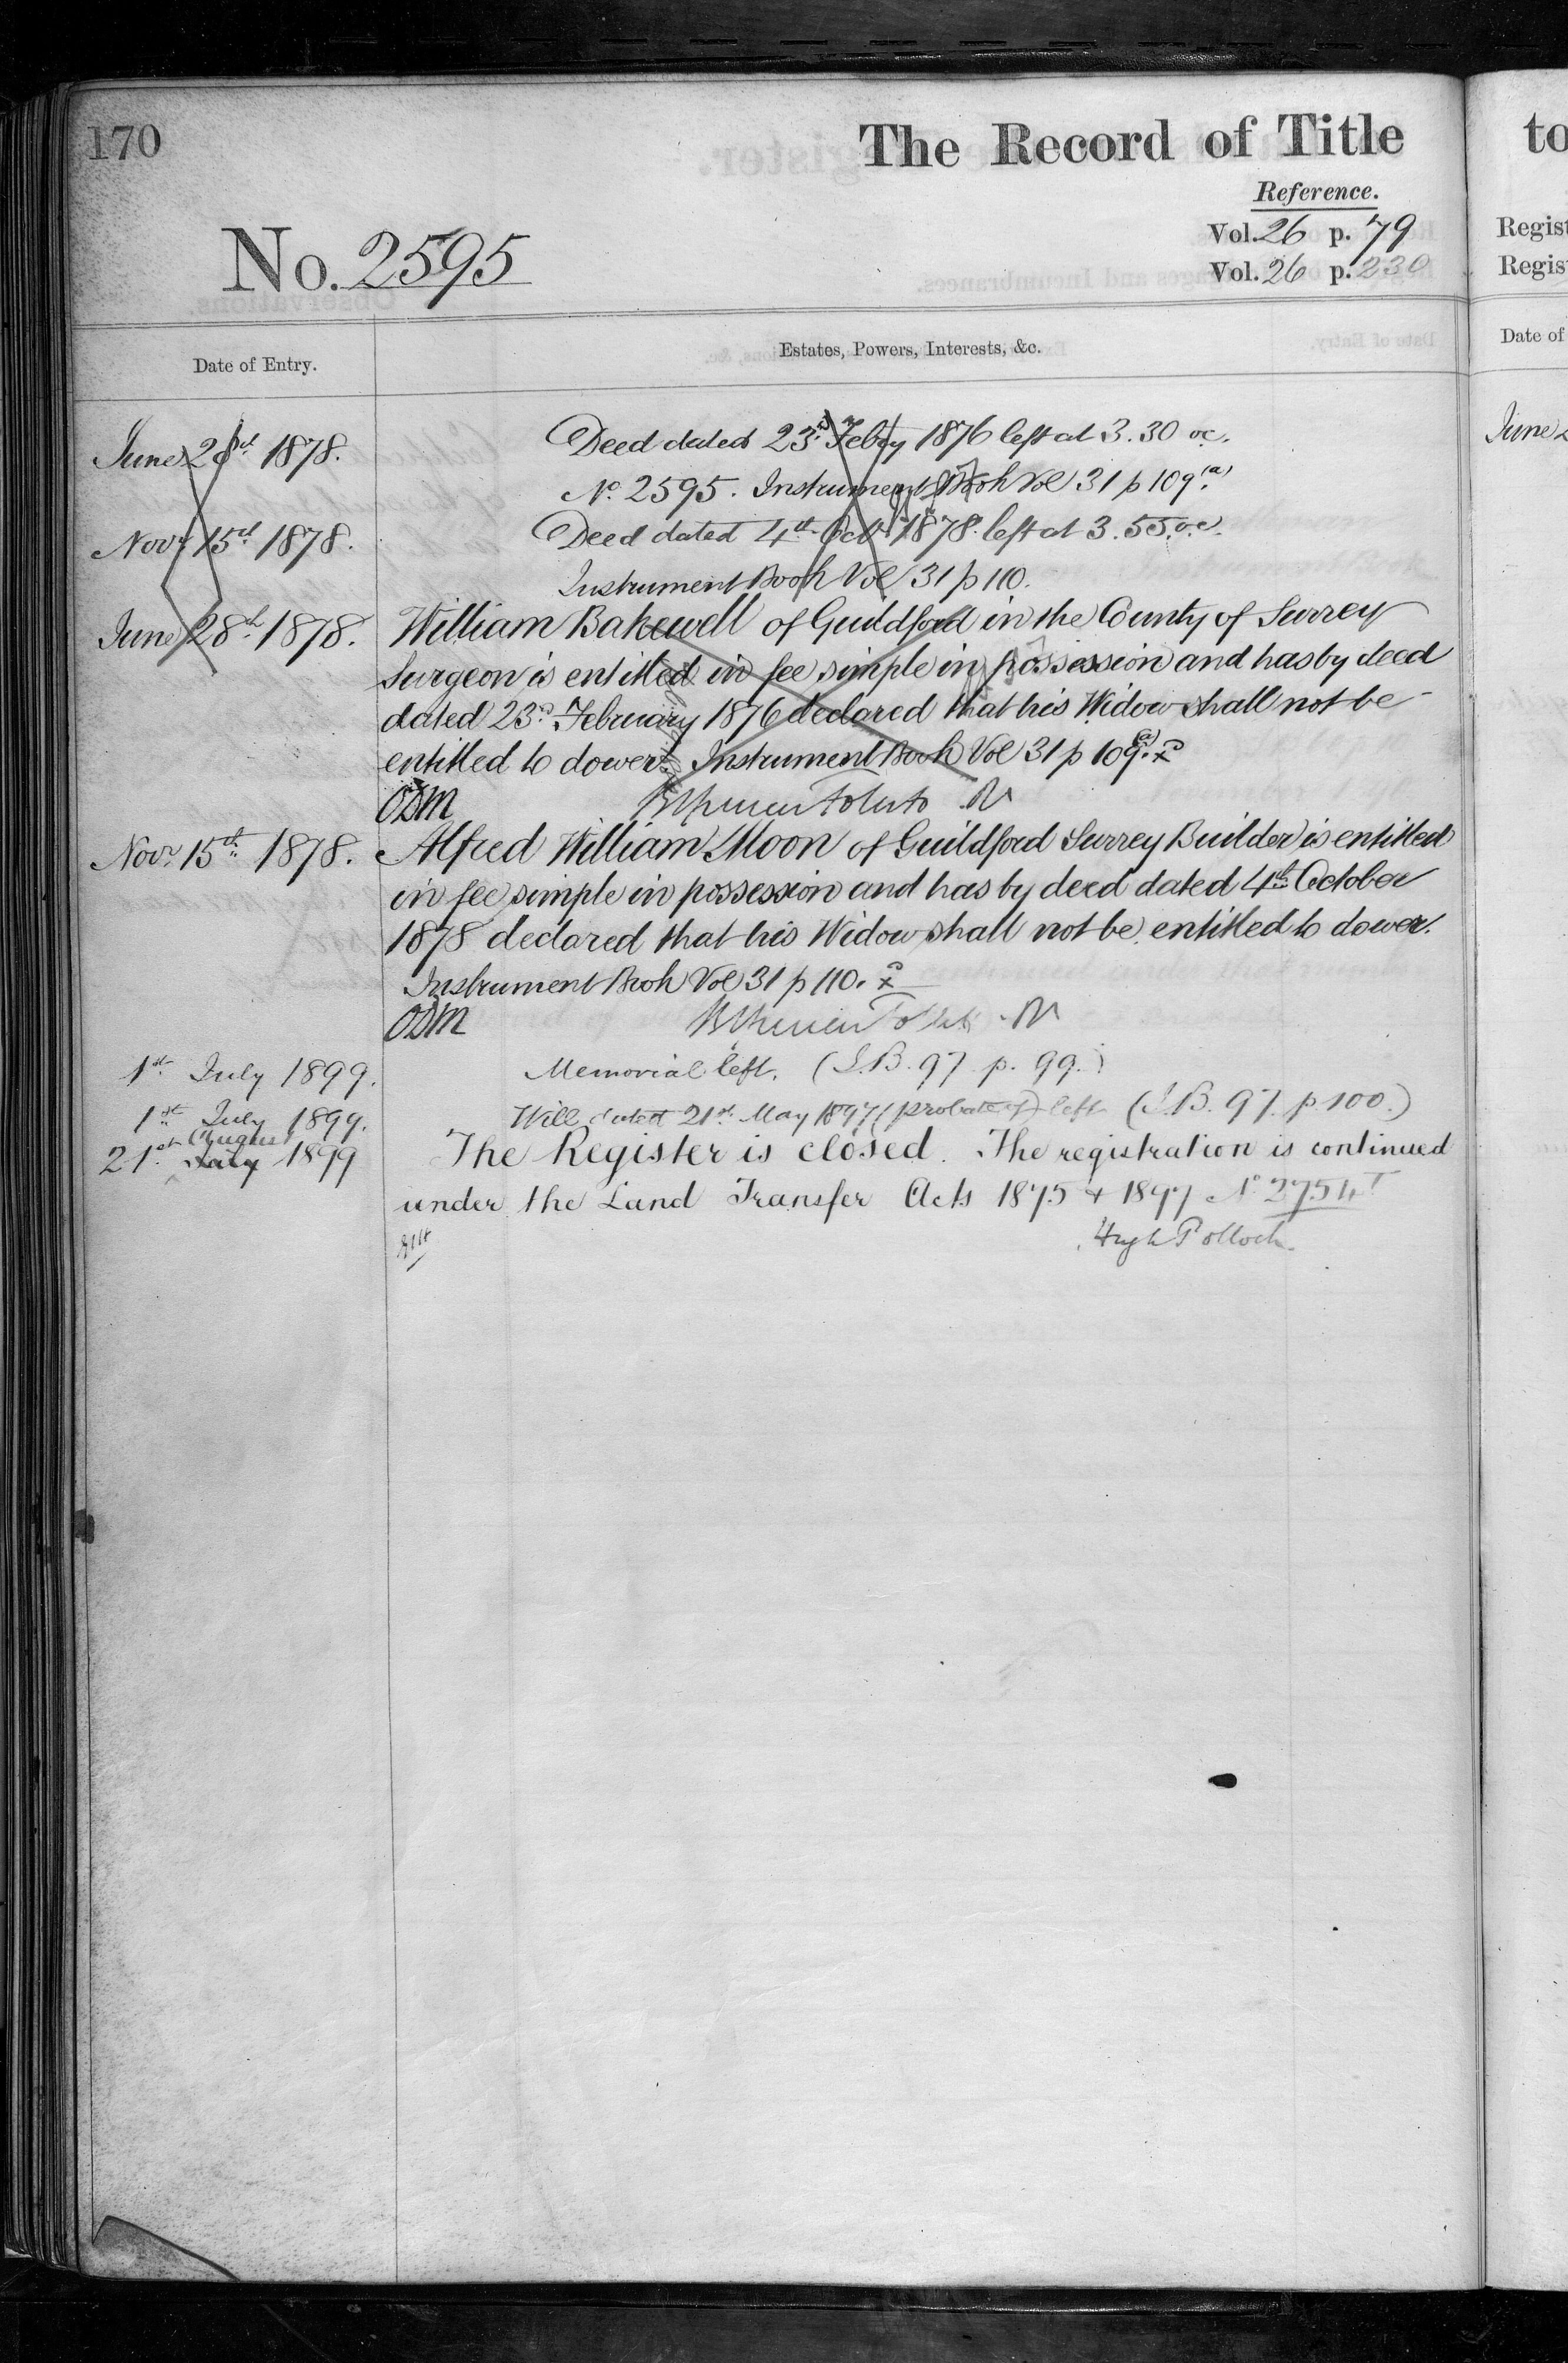 170
The Record of Title
Reference.
No. 2595
Vol. 26 p. 79
Vol. 26 p. 230
Date of Entry.
Estates, Powers, Interests, &c.
June 28th 1878. Deed dated 23rd Feby 1876 left at 3.30 oc.
No. 2595. Instrument Book Vol 31 p 109(a)
Novr 15th 1878. Deed dated 4th Octr 1878 left at 3.55 oc.
Instrument Book Vol 31 p 110.
June 28th 1878. William Bakewell of Guildford in the County of Surrey
Surgeon is entitled in fee simple in possession and has by deed
dated 23rd February 1876 declared that his Widow shall not be
entitled to dower. Instrument Book Vol 31 p 109(a).
ODM
Novr 15th 1878. Alfred William Moon of Guildford Surrey Builder is entitled
in fee simple in possession and has by deed dated 4th October
1878 declared that his Widow shall not be entitled to dower.
Instrument Book Vol 31 p 110.
ODM
1st July 1899. Memorial left. (I.B. 97 p. 99.)
1st July 1899. Will dated 21st May 1897 (probate of) left (I.B. 97 p 100.)
August
21st July 1899 The Register is closed. The registration is continued
under the Land Transfer Acts 1875 & 1897 No 2754
Hugh Pollock
to
Regist
Regis
Date of
June 2